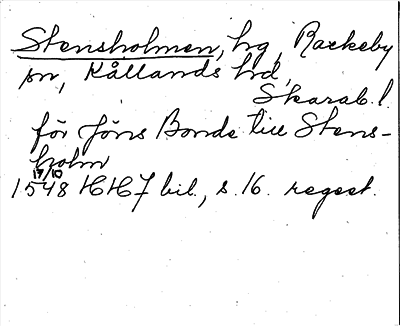 Stensholmen, hg, Rackeby
sn, Kållands hd,
Skarab. l.
för Jöns Bonde till Stens-
holm
17/10
1548 HH7 bil., s. 16. regest.